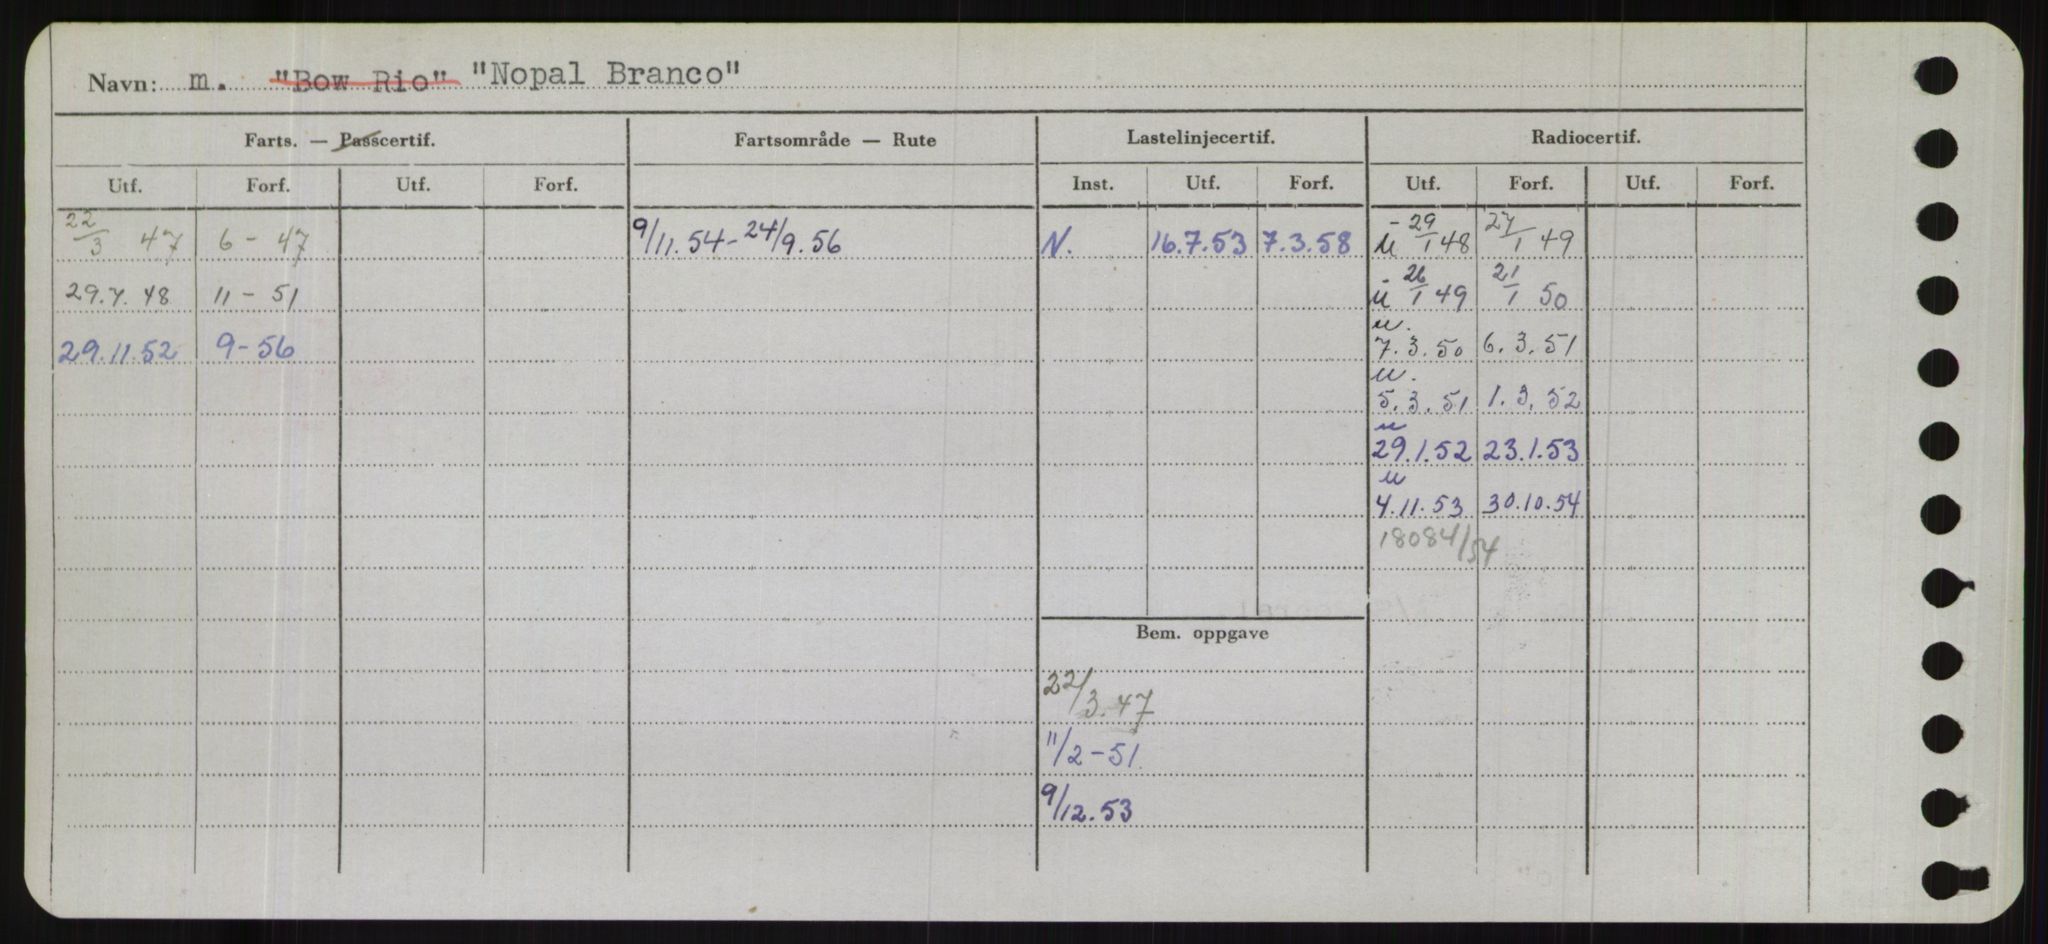 Navn: m. "Bow Rio" "Nopal Branco"
Farts. — Passcertif. Fartsområde — Rute Lastelinjecertif. Radiocertif.
Utf. Forf. Utf. Forf. Inst. Utf. Forf. Utf. Forf. Utf. Forf.
22/3 47 6 - 47 9/11.54 - 24/9.56 N. 16.7.53 7.3.58 u 29/1 48 27/1 49
29.7.48 11 - 51 u 26/1 49 21/1 50
29.11.52 9-56 u. 7.3.50 6.3.51
u. 5.3.51 1.3.52
u 29.1.52 23.1.53
u 4.11.53 30.10.54
18084/54
Bem. oppgave
22/3.47
11/2-51
9/12.53